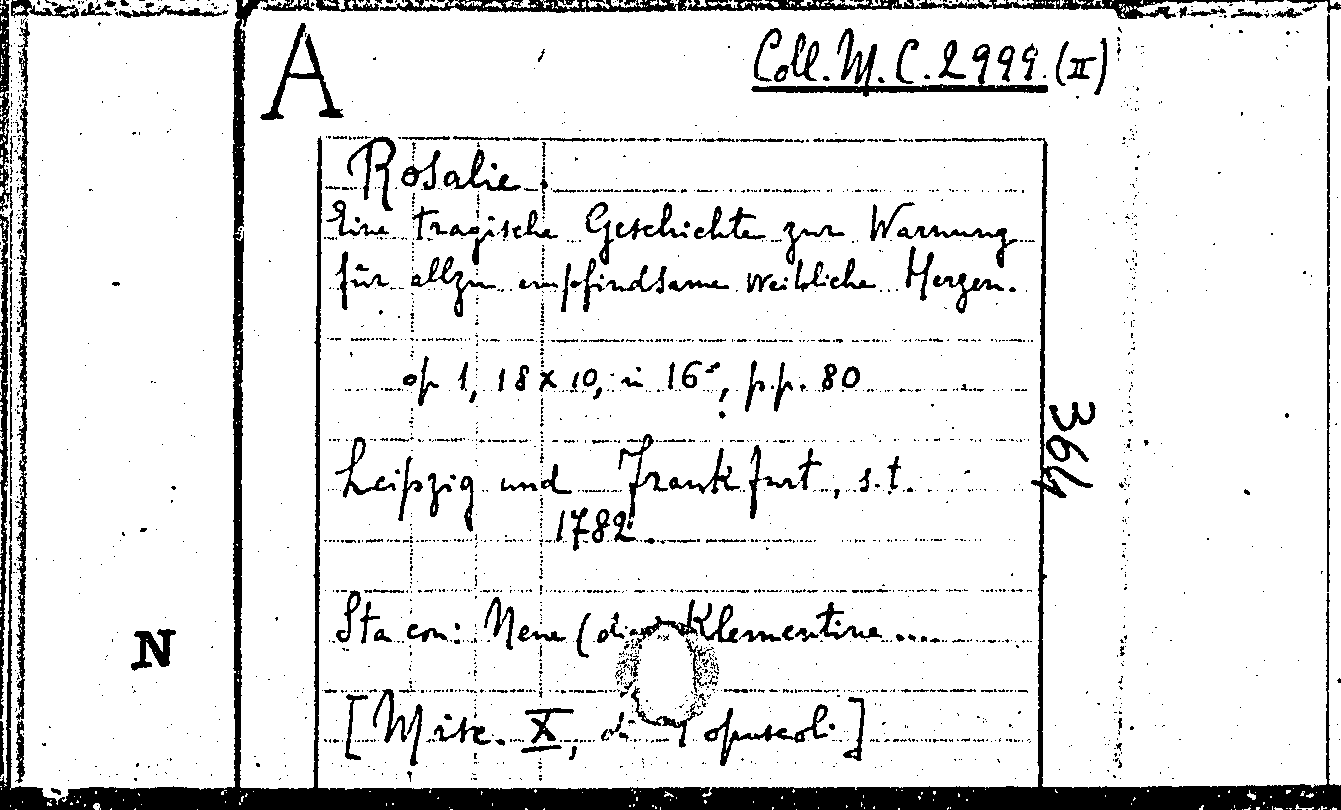 A
Coll. M. C. 2999. (II)
Rosalie.
Eine tragische Geschichte zur Warnung
für allzu empfindsame weibliche Herzen.
op 1, 18 x 10, in 16°, p.p. 80
364
Leipzig und Frankfurt, s.t.
1782.
Sta con: Neue (die) Klementine ....
N
[Misc. X, di opuscoli]